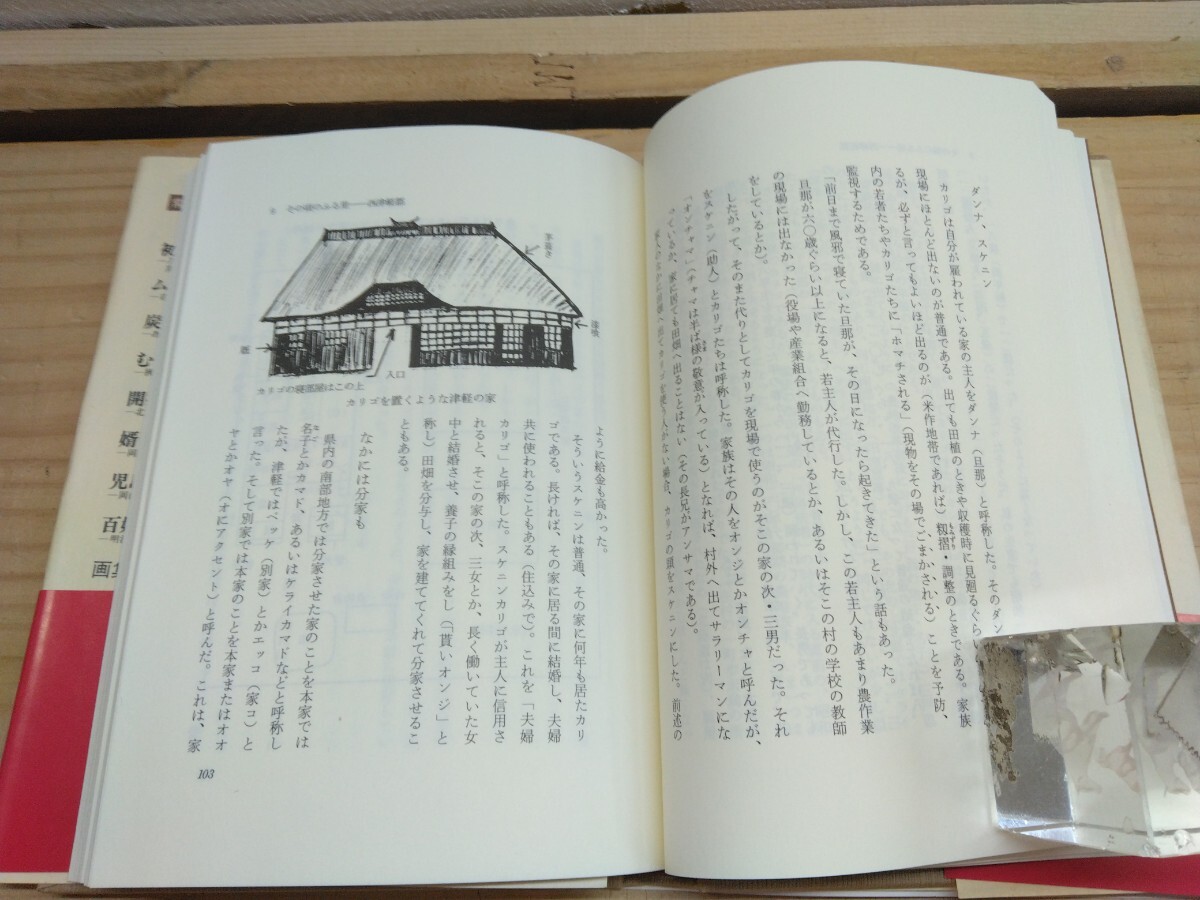 ダンナ、スケニン
カリゴは自分が雇われている家の主人をダンナ(旦那)と呼称した。そのダン
現場にほとんど出ないのが普通である。出ても田植のときや収穫時に見廻るぐらい
るが、必ずと言ってもよいほど出るのが(米作地帯であれば)籾摺・調整のときである。家族
内の若者たちやカリゴたちに「ホマチされる」(現物をその場でごまかされる)ことを予防、
監視するためである。
「前日まで風邪で寝ていた旦那が、その日になったら起きてきた」という話もあった。
旦那が六〇歳ぐらい以上になると、若主人が代行した。しかし、この若主人もあまり農作業
の現場には出なかった(役場や産業組合へ勤務しているとか、あるいはそこの村の学校の教師
をしているとか)。
したがって、そのまた代りとしてカリゴを現場で使うのがそこの家の次・三男だった。それ
をスケニン(助人)とカリゴたちは呼称した。家族はその人をオンジとかオンチャと呼んだが、
「オンチャマ」(チャマは半ば様の敬意が入っている)となれば、村外へ出てサラリーマンにな
っているか、家に居ても田畑へ出ることはない(その長兄がアンサマである)。
家人のなかに田畑へ出てカリゴを使う人がない場合、カリゴの頭をスケニンにした。前述の
茅葺き
漆喰
入口
カリゴの寝部屋はこの上
カリゴを置くような津軽の家
ように給金も高かった。
そういうスケニンは普通、その家に何年も居たカリ
ゴである。長ければ、その家に居る間に結婚し、夫婦
共に使われることもある(住込みで)。これを「夫婦
カリゴ」と呼称した。スケニンカリゴが主人に信用さ
れると、そこの家の次、三女とか、長く働いていた女
中と結婚させ、養子の縁組みをし(「貰いオンジ」と
称し)田畑を分与し、家を建ててくれて分家させるこ
ともある。
なかには分家も
県内の南部地方では分家させた家のことを本家では
名子とかカマド、あるいはケライカマドなどと呼称し
たが、津軽ではベッケ(別家)とかエッコ(家コ)と
言った。そして別家では本家のことを本家またはオオ
ヤとかオヤ(オにアクセント)と呼んだ。これは、家
103
ム
炭
む
開
婿
児
百
画集